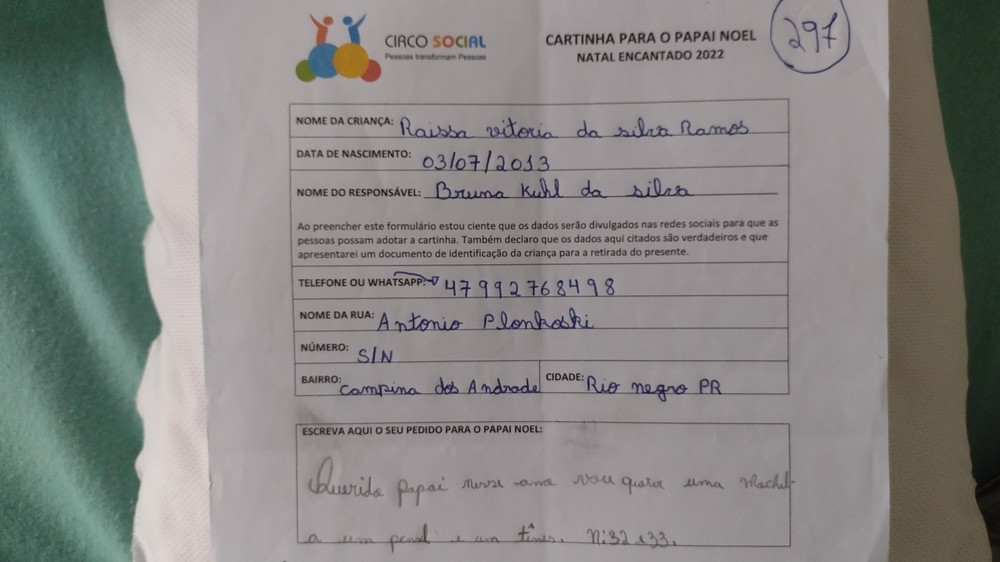 CIRCO SOCIAL
Pessoas transformam Pessoas
CARTINHA PARA O PAPAI NOEL
NATAL ENCANTADO 2022
297
NOME DA CRIANÇA: Raissa vitoria da silva Ramos
DATA DE NASCIMENTO: 03/07/2013
NOME DO RESPONSÁVEL: Bruna Kuhl da silva
Ao preencher este formulário estou ciente que os dados serão divulgados nas redes sociais para que as
pessoas possam adotar a cartinha. Também declaro que os dados aqui citados são verdadeiros e que
apresentarei um documento de identificação da criança para a retirada do presente.
TELEFONE OU WHATSAPP: 47992768498
NOME DA RUA: Antonio Plonkoski
NÚMERO: S/N
BAIRRO: Campina dos Andrade CIDADE: Rio negro PR
ESCREVA AQUI O SEU PEDIDO PARA O PAPAI NOEL:
Querido papai nesse ano vou querer uma Mochil-
a um penal e un tênis. N:32 e 33.